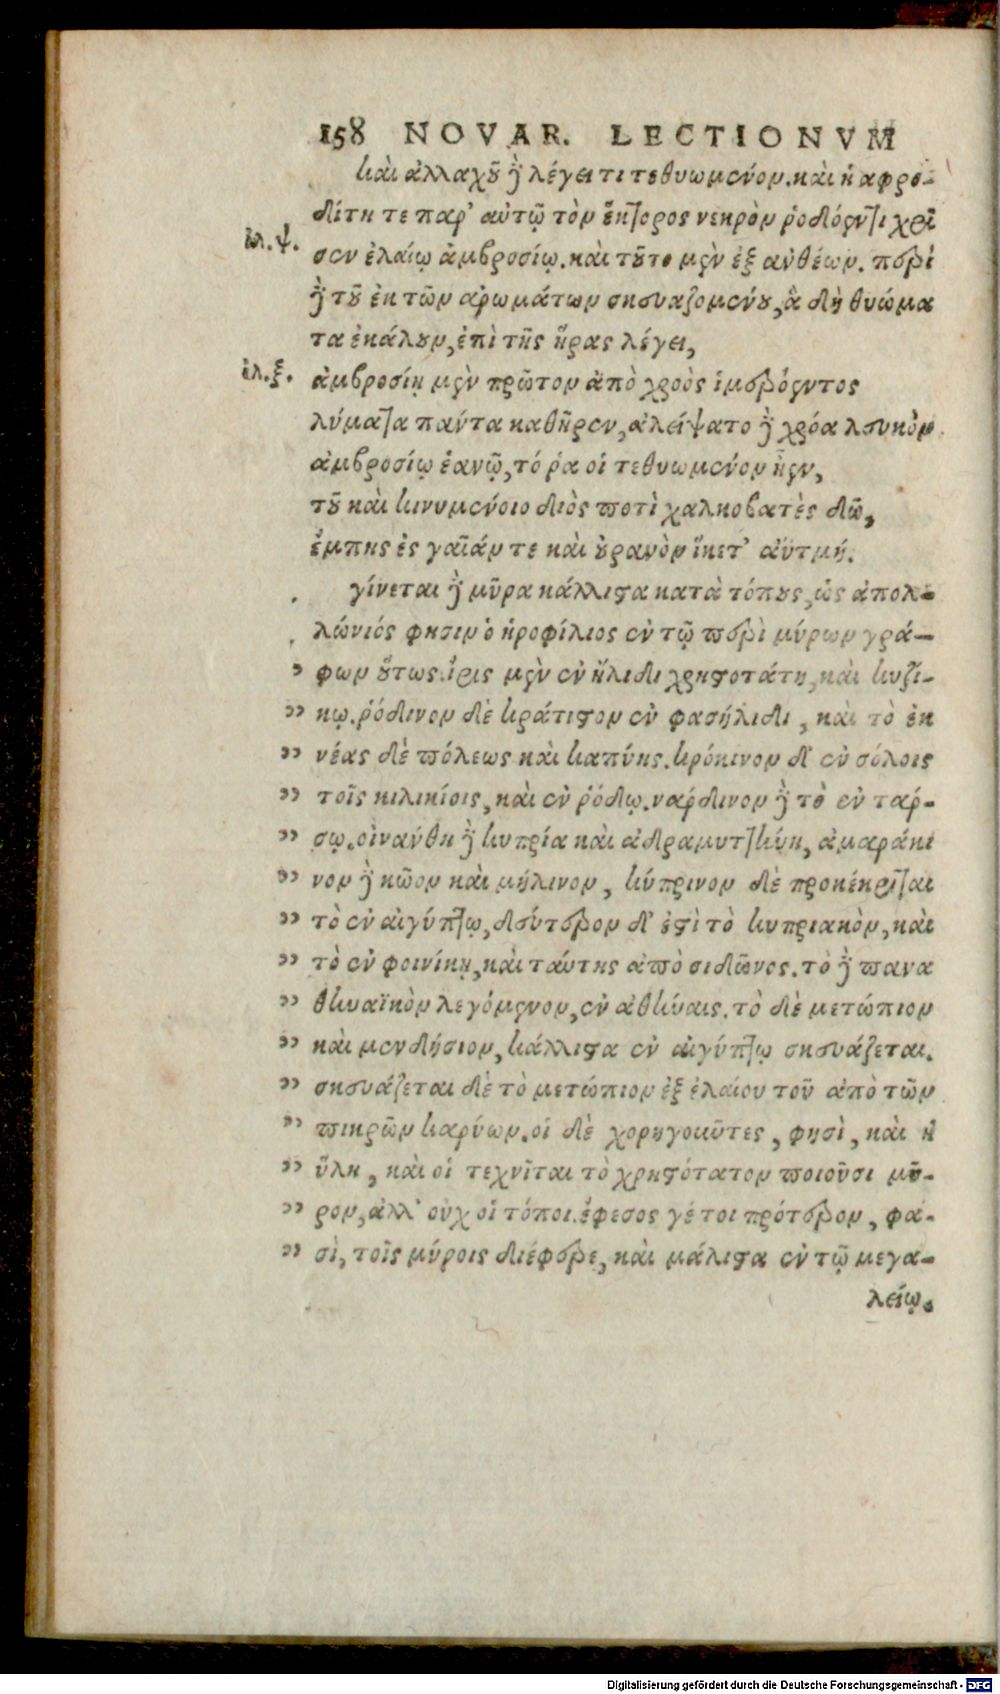 158 NOVAR. LECTIONVM
καὶ ἀλλαχοῦ δὲ λέγει τι τεθυωμένον. καὶ ἡ αφρο-
δίτη τε παρ' αὐτῷ τὸν ἕκτορος νεκρὸν ῥοδόεντι χρῖ
ιλ. ψ.
σεν ἐλαίῳ ἀμβροσίῳ. καὶ τοῦτο μὲν ἐξ ανθέων. περὶ
δὲ τοῦ ἐκ τῶν αρωμάτων σκευαζομένου, ἃ δὴ θυώμα
τα ἐκάλουν, ἐπὶ τῆς ἥρας λέγει,
ιλ. ξ.
ἀμβροσίῃ μὲν πρῶτον ἀπὸ χροὸς ἱμερόεντος
λύματα παύτα καθῆρεν, ἀλείψατο δὲ χρόα λευκὸν
ἀμβροσίῳ ἑανῷ, τό ῥα οἱ τεθυωμένον ἦεν,
τοῦ καὶ κινυμένοιο διὸς ποτὶ χαλκοβατὲς δῶ,
ἔμπης ἐς γαῖάν τε καὶ οὐρανὸν ἵκετ' αὐτμή.
γίνεται δὲ μῦρα κάλλιστα κατὰ τόπους, ὡς ἀπολ-
λώνιός φησιν ὁ ἡροφίλιος ἐν τῷ περὶ μύρων γρά-
" φων οὕτως. ἶρις μὲν ἐν ἤλιδι χρηστοτάτη, καὶ κυζί-
" κῳ. ῥόδινον δὲ κράτιστον ἐν φασήλιδι, καὶ τὸ ἐκ
" νέας δὲ πόλεως καὶ καπύης. κρόκινον δ' ἐν σόλοις
" τοῖς κιλικίοις, καὶ ἐν ῥόδῳ. νάρδινον δὲ τὸ ἐν ταρ-
" σῳ. οἰνάνθη δὲ κυπρία καὶ ἀδραμυττηνὴ, ἀμαράκι
" νον δὲ κῶον καὶ μήλινον, κύπρινον δὲ προκέκριται
" τὸ ἐν αἰγύπτῳ, δεύτερον δ' ἐστὶ τὸ κυπριακὸν, καὶ
" τὸ ἐν φοινίκῃ, καὶ ταύτης ἀπὸ σιδῶνος. τὸ δὲ πανα
" θηναϊκὸν λεγόμενον, ἐν ἀθήναις. τὸ δὲ μετώπιον
" καὶ μενδήσιον, κάλλιστα ἐν αἰγύπτῳ σκευάζεται.
" σκευάζεται δὲ τὸ μετώπιον ἐξ ἐλαίου τοῦ ἀπὸ τῶν
" πικρῶν καρύων. οἱ δὲ χορηγοῦντες, φησὶ, καὶ ἡ
" ὕλη, καὶ οἱ τεχνῖται τὸ χρηστότατον ποιοῦσι μῦ-
" ρον, ἀλλ' οὐχ οἱ τόποι. ἔφεσος γέ τοι πρότερον, φα-
" σὶ, τοῖς μύροις διέφερε, καὶ μάλιστα ἐν τῷ μεγα-
λείῳ.
Digitalisierung gefördert durch die Deutsche Forschungsgemeinschaft - DFG